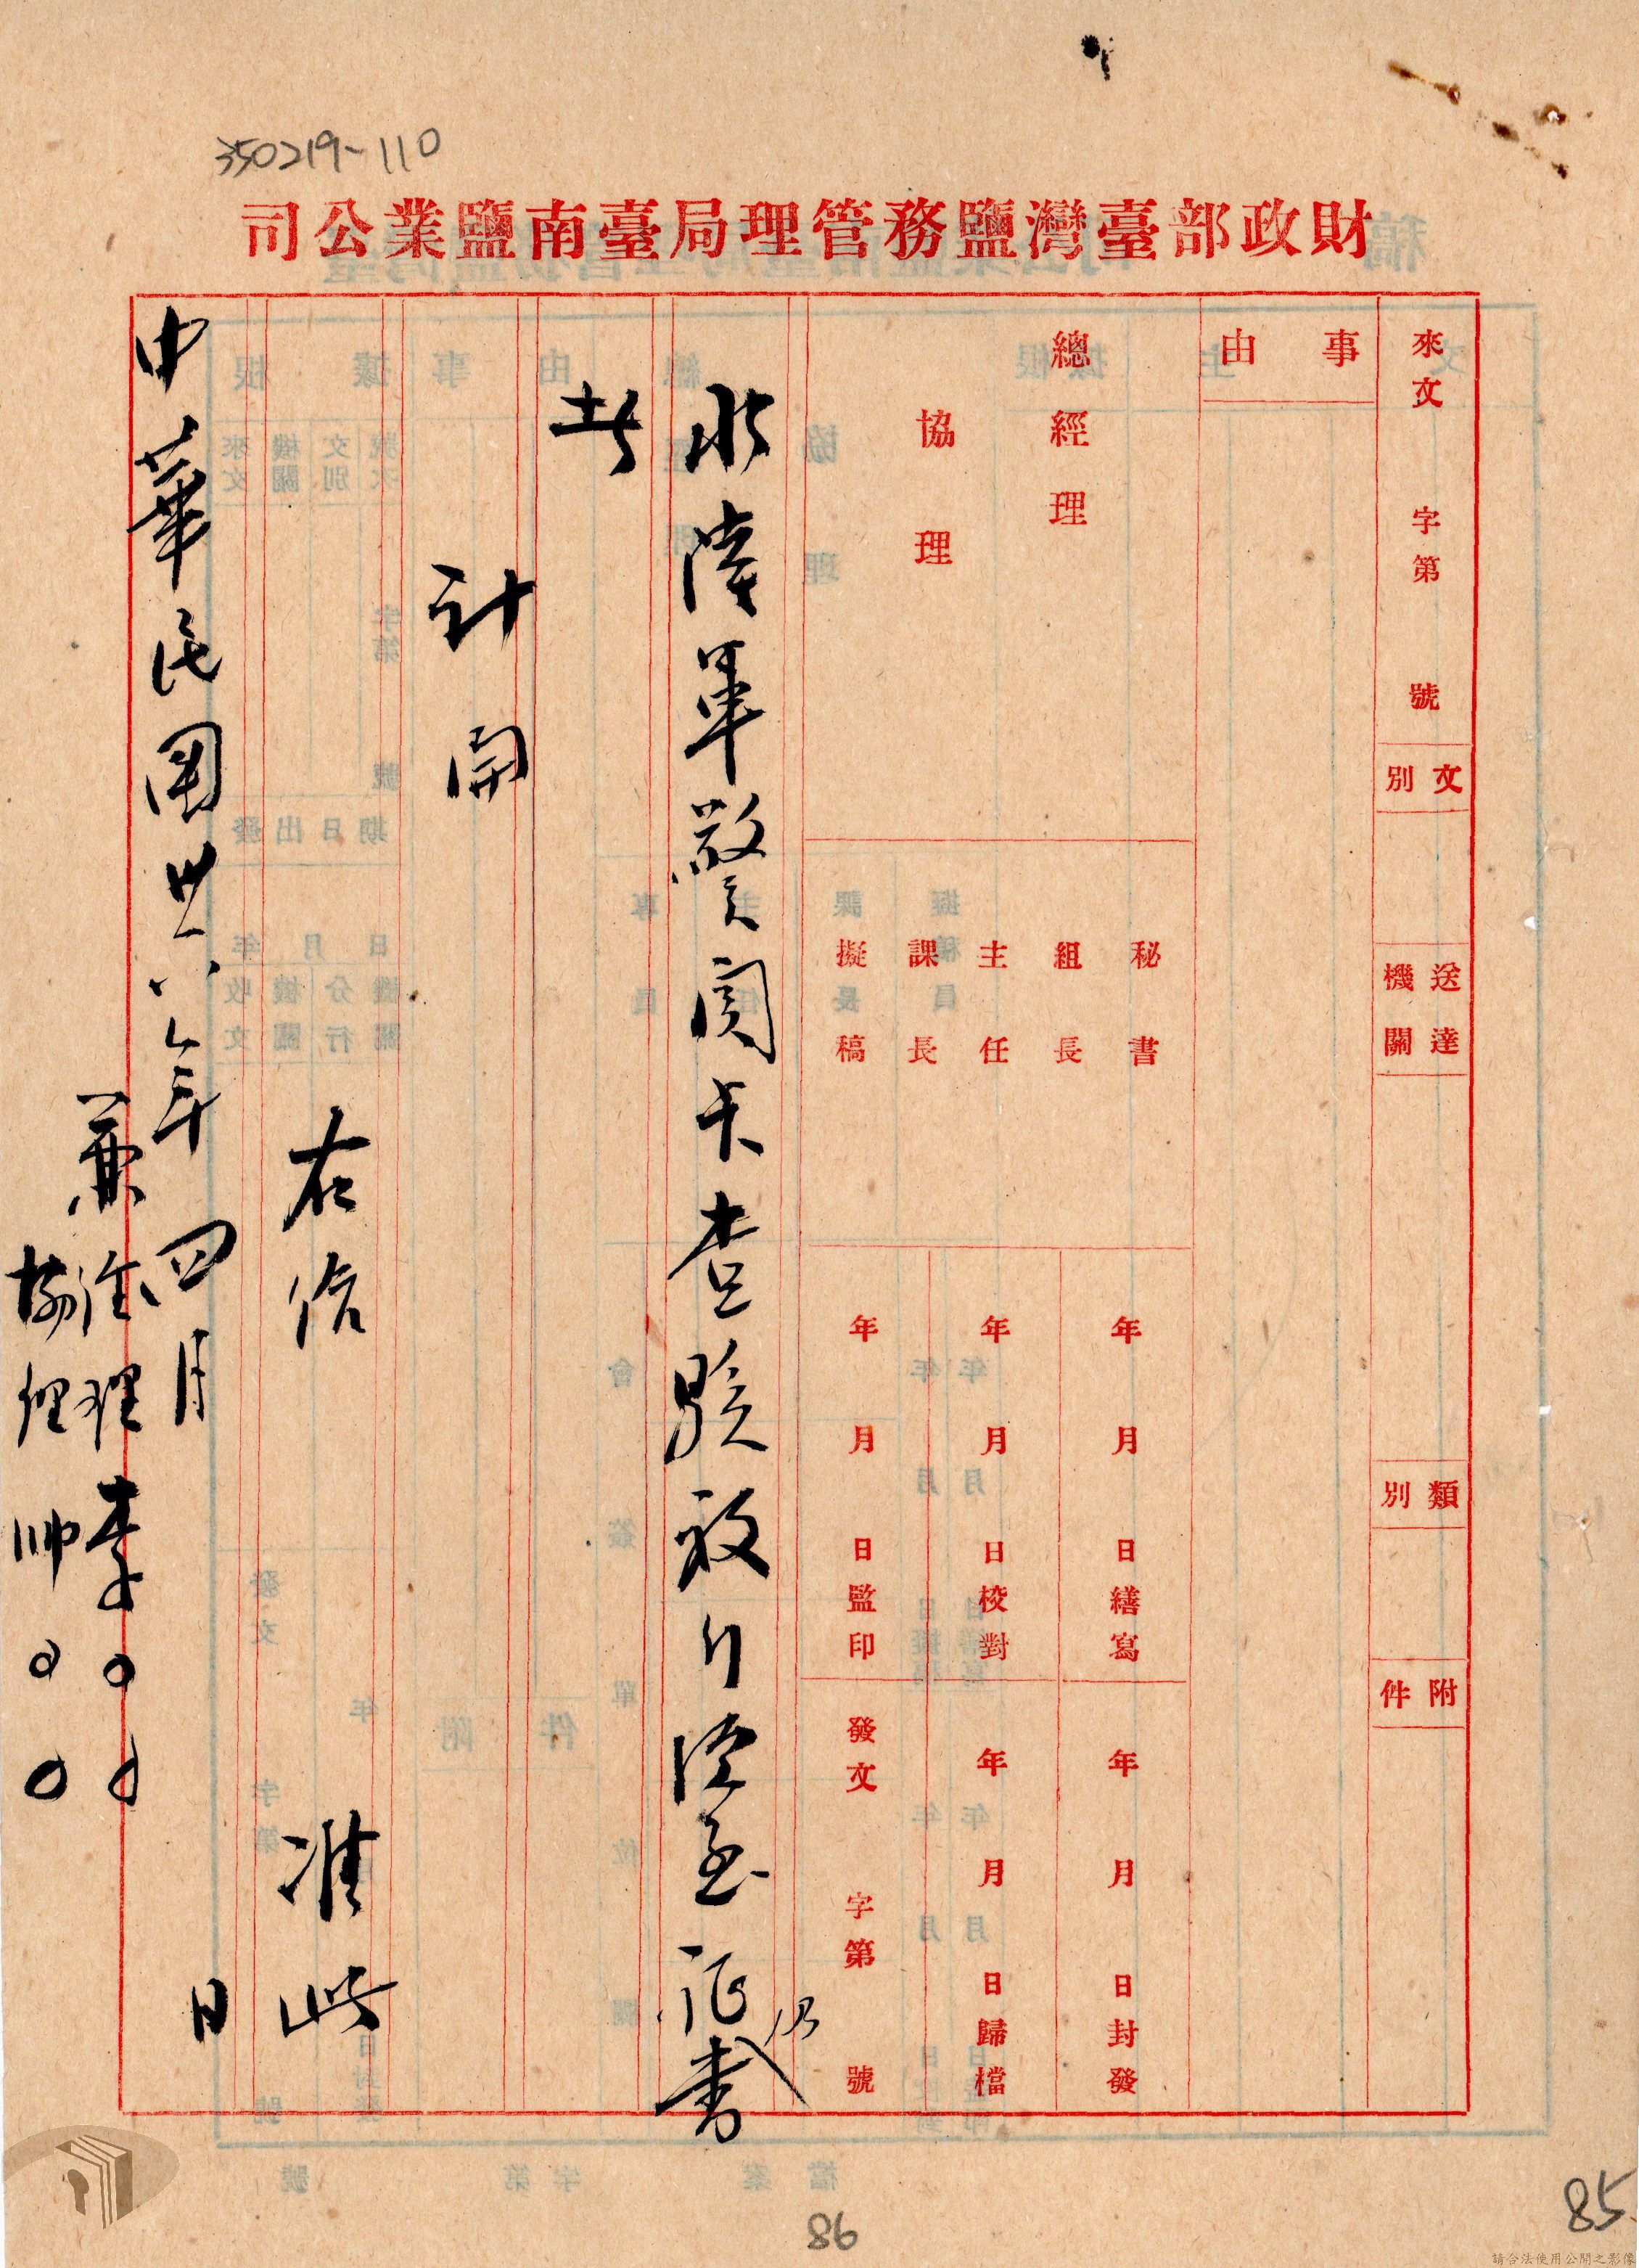 350219-110
財政部臺灣鹽務管理局臺南鹽業公司
來文 字第 號
文別
送達機關
類別
附件
事由
總經理
協理
秘書
組長
主任
課長
擬稿
年 月 日繕寫
年 月 日校對
年 月 日監印
年 月 日封發
年 月 日歸檔
發文 字第 號
水陸軍警関卡查驗放行須至
書
者
計開
右給 准此
中華民國卅六年四月 日
兼經理李○○
協理帥○○
86
85
請合法使用公開之影像